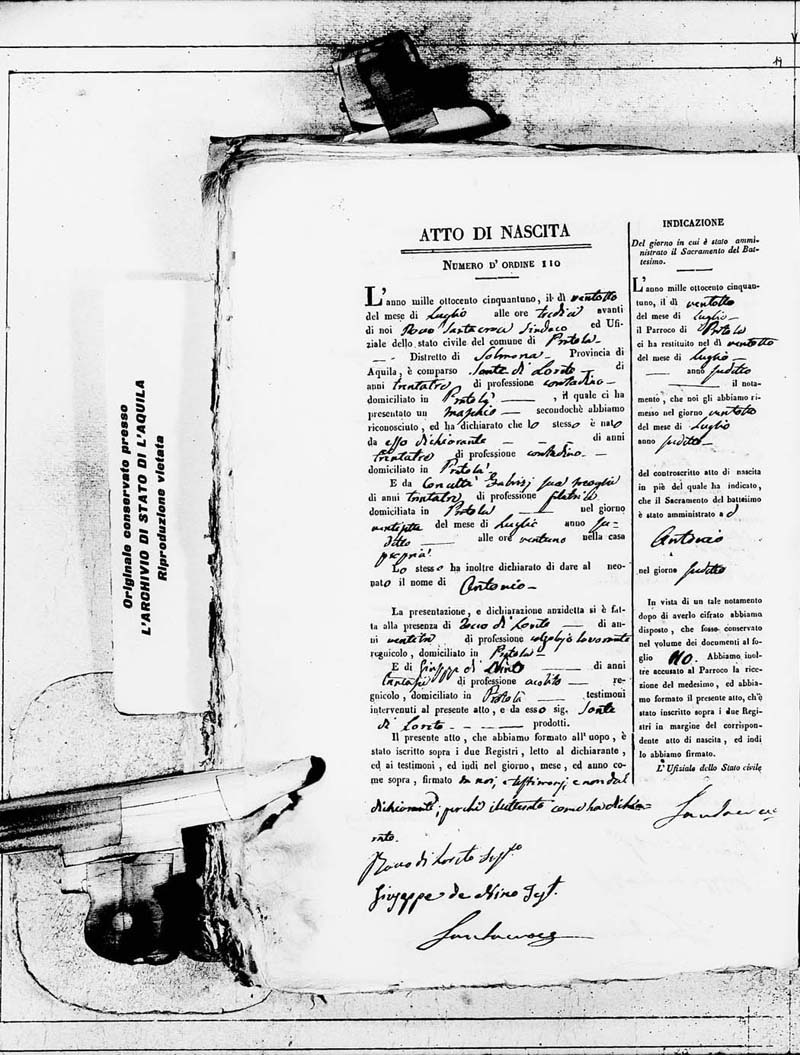 14
Originale conservato presso
L'ARCHIVIO DI STATO DI L'AQUILA
Riproduzione vietata
ATTO DI NASCITA
NUMERO D' ORDINE 110
L'anno mille ottocento cinquantuno, il dì ventotto
del mese di Luglio alle ore tredici avanti
di noi Santacroce Sindaco ed Ufi-
ziale dello stato civile del comune di Pratola
Distretto di Solmona Provincia di
Aquila, è comparso Sante di Loreto di
anni trentatre di professione contadino
domiciliato in Pratola, il quale ci ha
presentato un maschio secondochè abbiamo
riconosciuto, ed ha dichiarato che lo stesso è nato
da esso dichiarante di anni
trentatre di professione contadino
domiciliato in Pratola
E da Concetta sua moglie
di anni trentatre di professione filatrice
domiciliata in Pratola nel giorno
ventisette del mese di Luglio anno su-
detto alle ore ventuno nella casa
propria
Lo stesso ha inoltre dichiarato di dare al neo-
nato il nome di Antonio
La presentazione, e dichiarazione anzidetta si è fat-
ta alla presenza di di Loreto di an-
ni di professione
regnicolo, domiciliato in Pratola
E di Giuseppe di Nino di anni
di professione re-
gnicolo, domiciliato in Pratola testimoni
intervenuti al presente atto, e da esso sig. Sante
di Loreto prodotti.
Il presente atto, che abbiamo formato all'uopo, è
stato iscritto sopra i due Registri, letto al dichiarante,
ed ai testimoni, ed indi nel giorno, mese, ed anno co-
me sopra, firmato da noi, e testimonj, e non dal
dichiarante, perchè illetterato come ha dichia-
rato.
di Loreto Test.
Giuseppe de Nino Test.
Santacroce
INDICAZIONE
Del giorno in cui è stato ammi-
nistrato il Sacramento del Bat-
tesimo.
L'anno mille ottocento cinquan-
tuno, il dì ventotto
del mese di Luglio
il Parroco di Pratola
ci ha restituito nel dì ventotto
del mese di Luglio
anno sudetto
il nota-
mento, che noi gli abbiamo ri-
messo nel giorno ventotto
del mese di Luglio
anno sudetto
del controscritto atto di nascita
in piè del quale ha indicato,
che il Sacramento del battesimo
è stato amministrato a d
Antonio
nel giorno sudetto
In vista di un tale notamento
dopo di averlo cifrato abbiamo
disposto, che fosse conservato
nel volume dei documenti al fo-
glio 110. Abbiamo inol-
tre accusato al Parroco la rice-
zione del medesimo, ed abbia-
mo formato il presente atto, ch'è
stato inscritto sopra i due Regi-
stri in margine del corrispon-
dente atto di nascita, ed indi
lo abbiamo firmato.
L'Ufiziale dello Stato civile
Santacroce